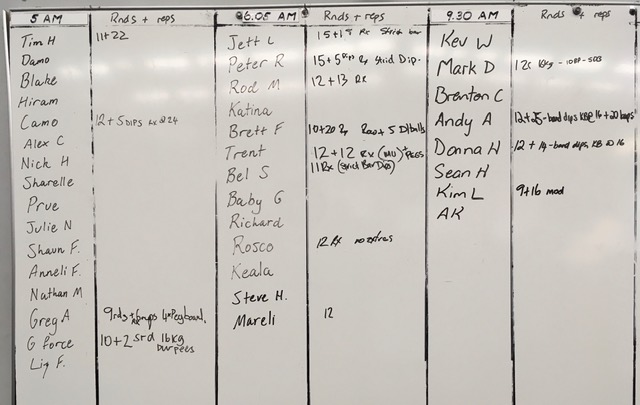 5 AM Rnds + reps
Tim H 11+22
Damo
Blake
Hiram
Camo 12+5 DIPS Rx @ 24
Alex C
Nick H
Sharelle
Prue
Julie N
Shaun F.
Anneli F.
Nathan M
Greg A 9rds
G Force 10+2 16kg
Liz F.
6.05 AM Rnds + reps
Jett L 15+15 Rx Strict bar
Peter R 15+5 Rx Strict Dip.
Rod M 12+13 Rx
Katina
Brett F 10+20 Rx
Trent 12+12 Rx (MU)
Bel S 11 Rx (Strict Bar Dips)
Baby G
Richard
Rosco 12 Rx no extras
Keala
Steve H.
Mareli 12
9.30 AM Rnds + reps
Kev W
Mark D
Brenton C
Andy A 12+25-band dips KB@16+20
Donna H 12+14-band dips, KB@16
Sean H
Kim L 9+16 mod
AK